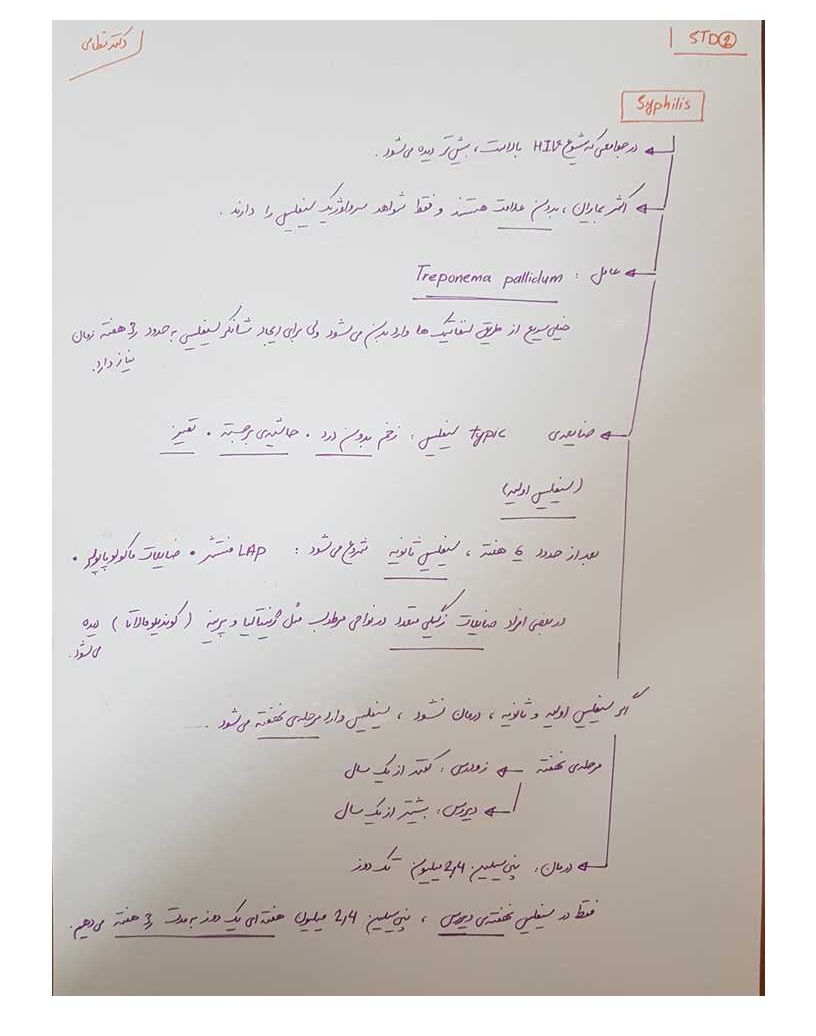 STD②
دکتر نظامی
Syphilis
در جوامعی که شیوع HIV بالاست، بیش تر دیده می شود.
اکثر بیماران، بدون علامت هستند و فقط شواهد سرولوژیک سیفلیس را دارند.
عامل: Treponema pallidum
خیلی سریع از طریق لنفاتیک ها وارد بدن می شود ولی برای ایجاد شانکر سیفلیس به حدود 3 هفته زمان
نیاز دارد.
ضایعه ی typic سیفلیس: زخم بدون درد • حاشیه ی برجسته • تمیز
(سیفلیس اولیه)
بعد از حدود 6 هفته، سیفلیس ثانویه شروع می شود: LAP منتشر • ضایعات ماکولوپاپولر •
در بعضی افراد ضایعات زگیلی متعدد در نواحی مرطوب مثل ژنیتالیا و پرینه (کوندیلوما لاتا) دیده
می شود.
اگر سیفلیس اولیه و ثانویه، درمان نشود، سیفلیس وارد مرحله ی نهفته می شود.
مرحله ی نهفته ← زودرس: کمتر از یک سال
← دیررس: بیشتر از یک سال
← درمان: پنی سیلین 2,4 میلیون تک دوز
فقط در سیفلیس نهفته ی دیررس، پنی سیلین 2,4 میلیون هفته ای یک دوز به مدت 3 هفته می دهیم.